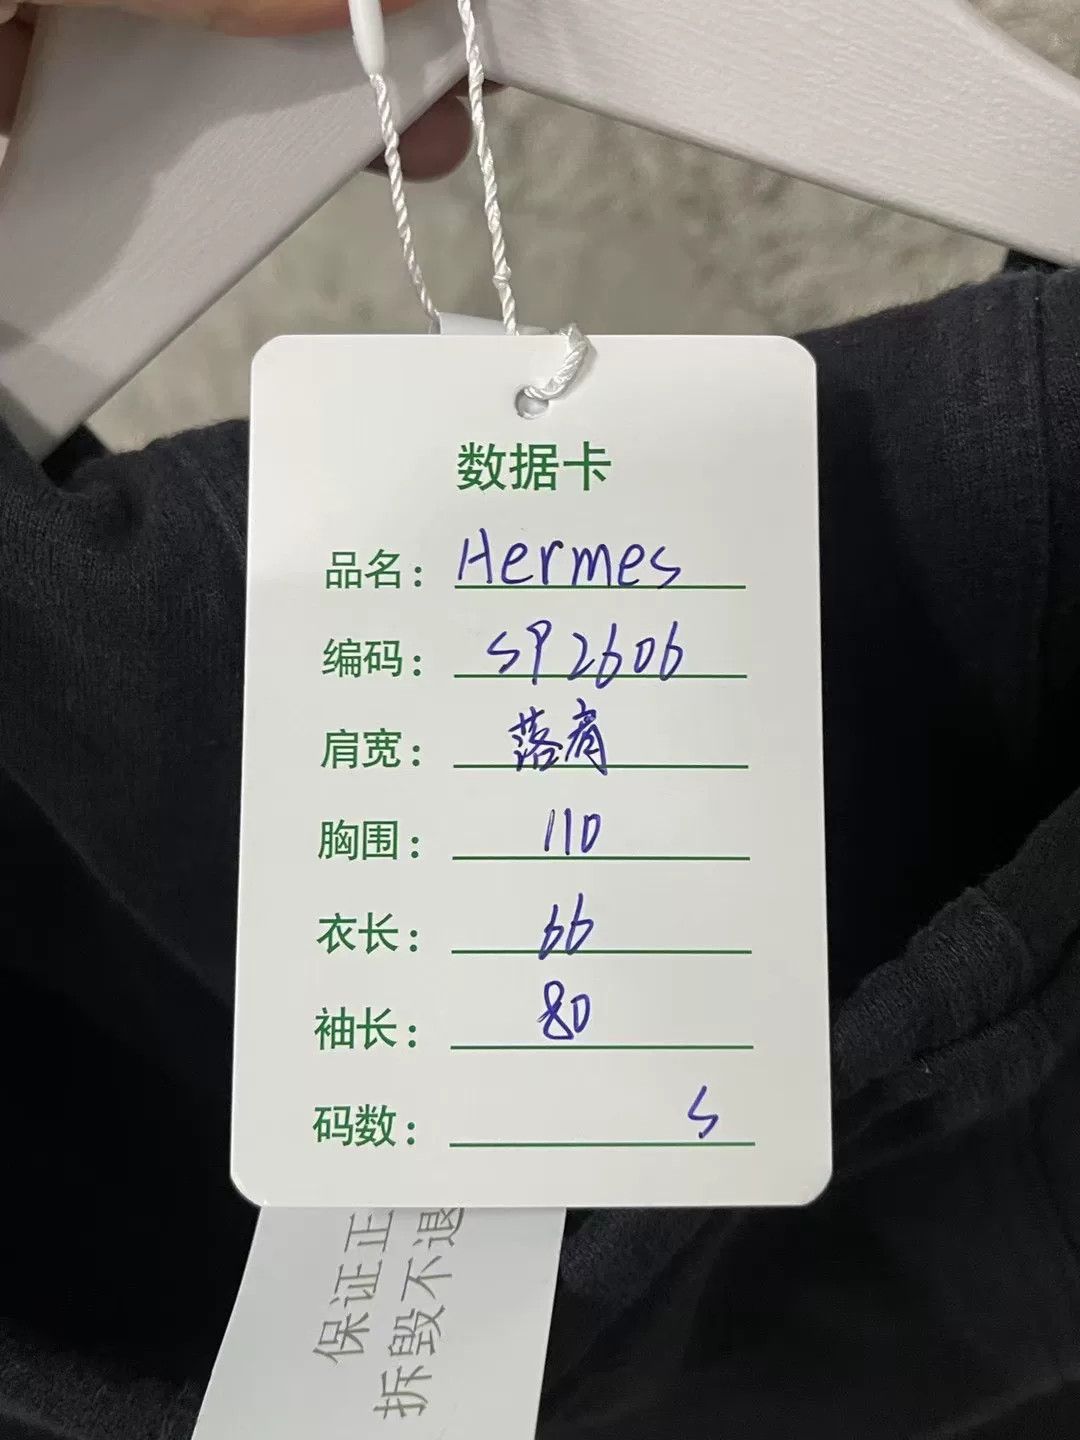 数据卡
品名: Hermes
编码: SP2606
肩宽: 落肩
胸围: 110
衣长: 66
袖长: 80
码数: S
保证正
拆毁不退